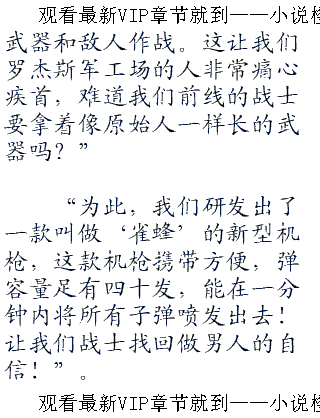 观看最新VIP章节就到——小说
武器和敌人作战。这让我们
罗杰斯军工场的人非常痛心
疾首，难道我们前线的战士
要拿着像原始人一样长的武
器吗？”
“为此，我们研发出了
一款叫做‘雀蜂’的新型机
枪，这款机枪携带方便，弹
容量足有四十发，能在一分
钟内将所有子弹喷发出去！
让我们战士找回做男人的自
信！”。
观看最新VIP章节就到——小说